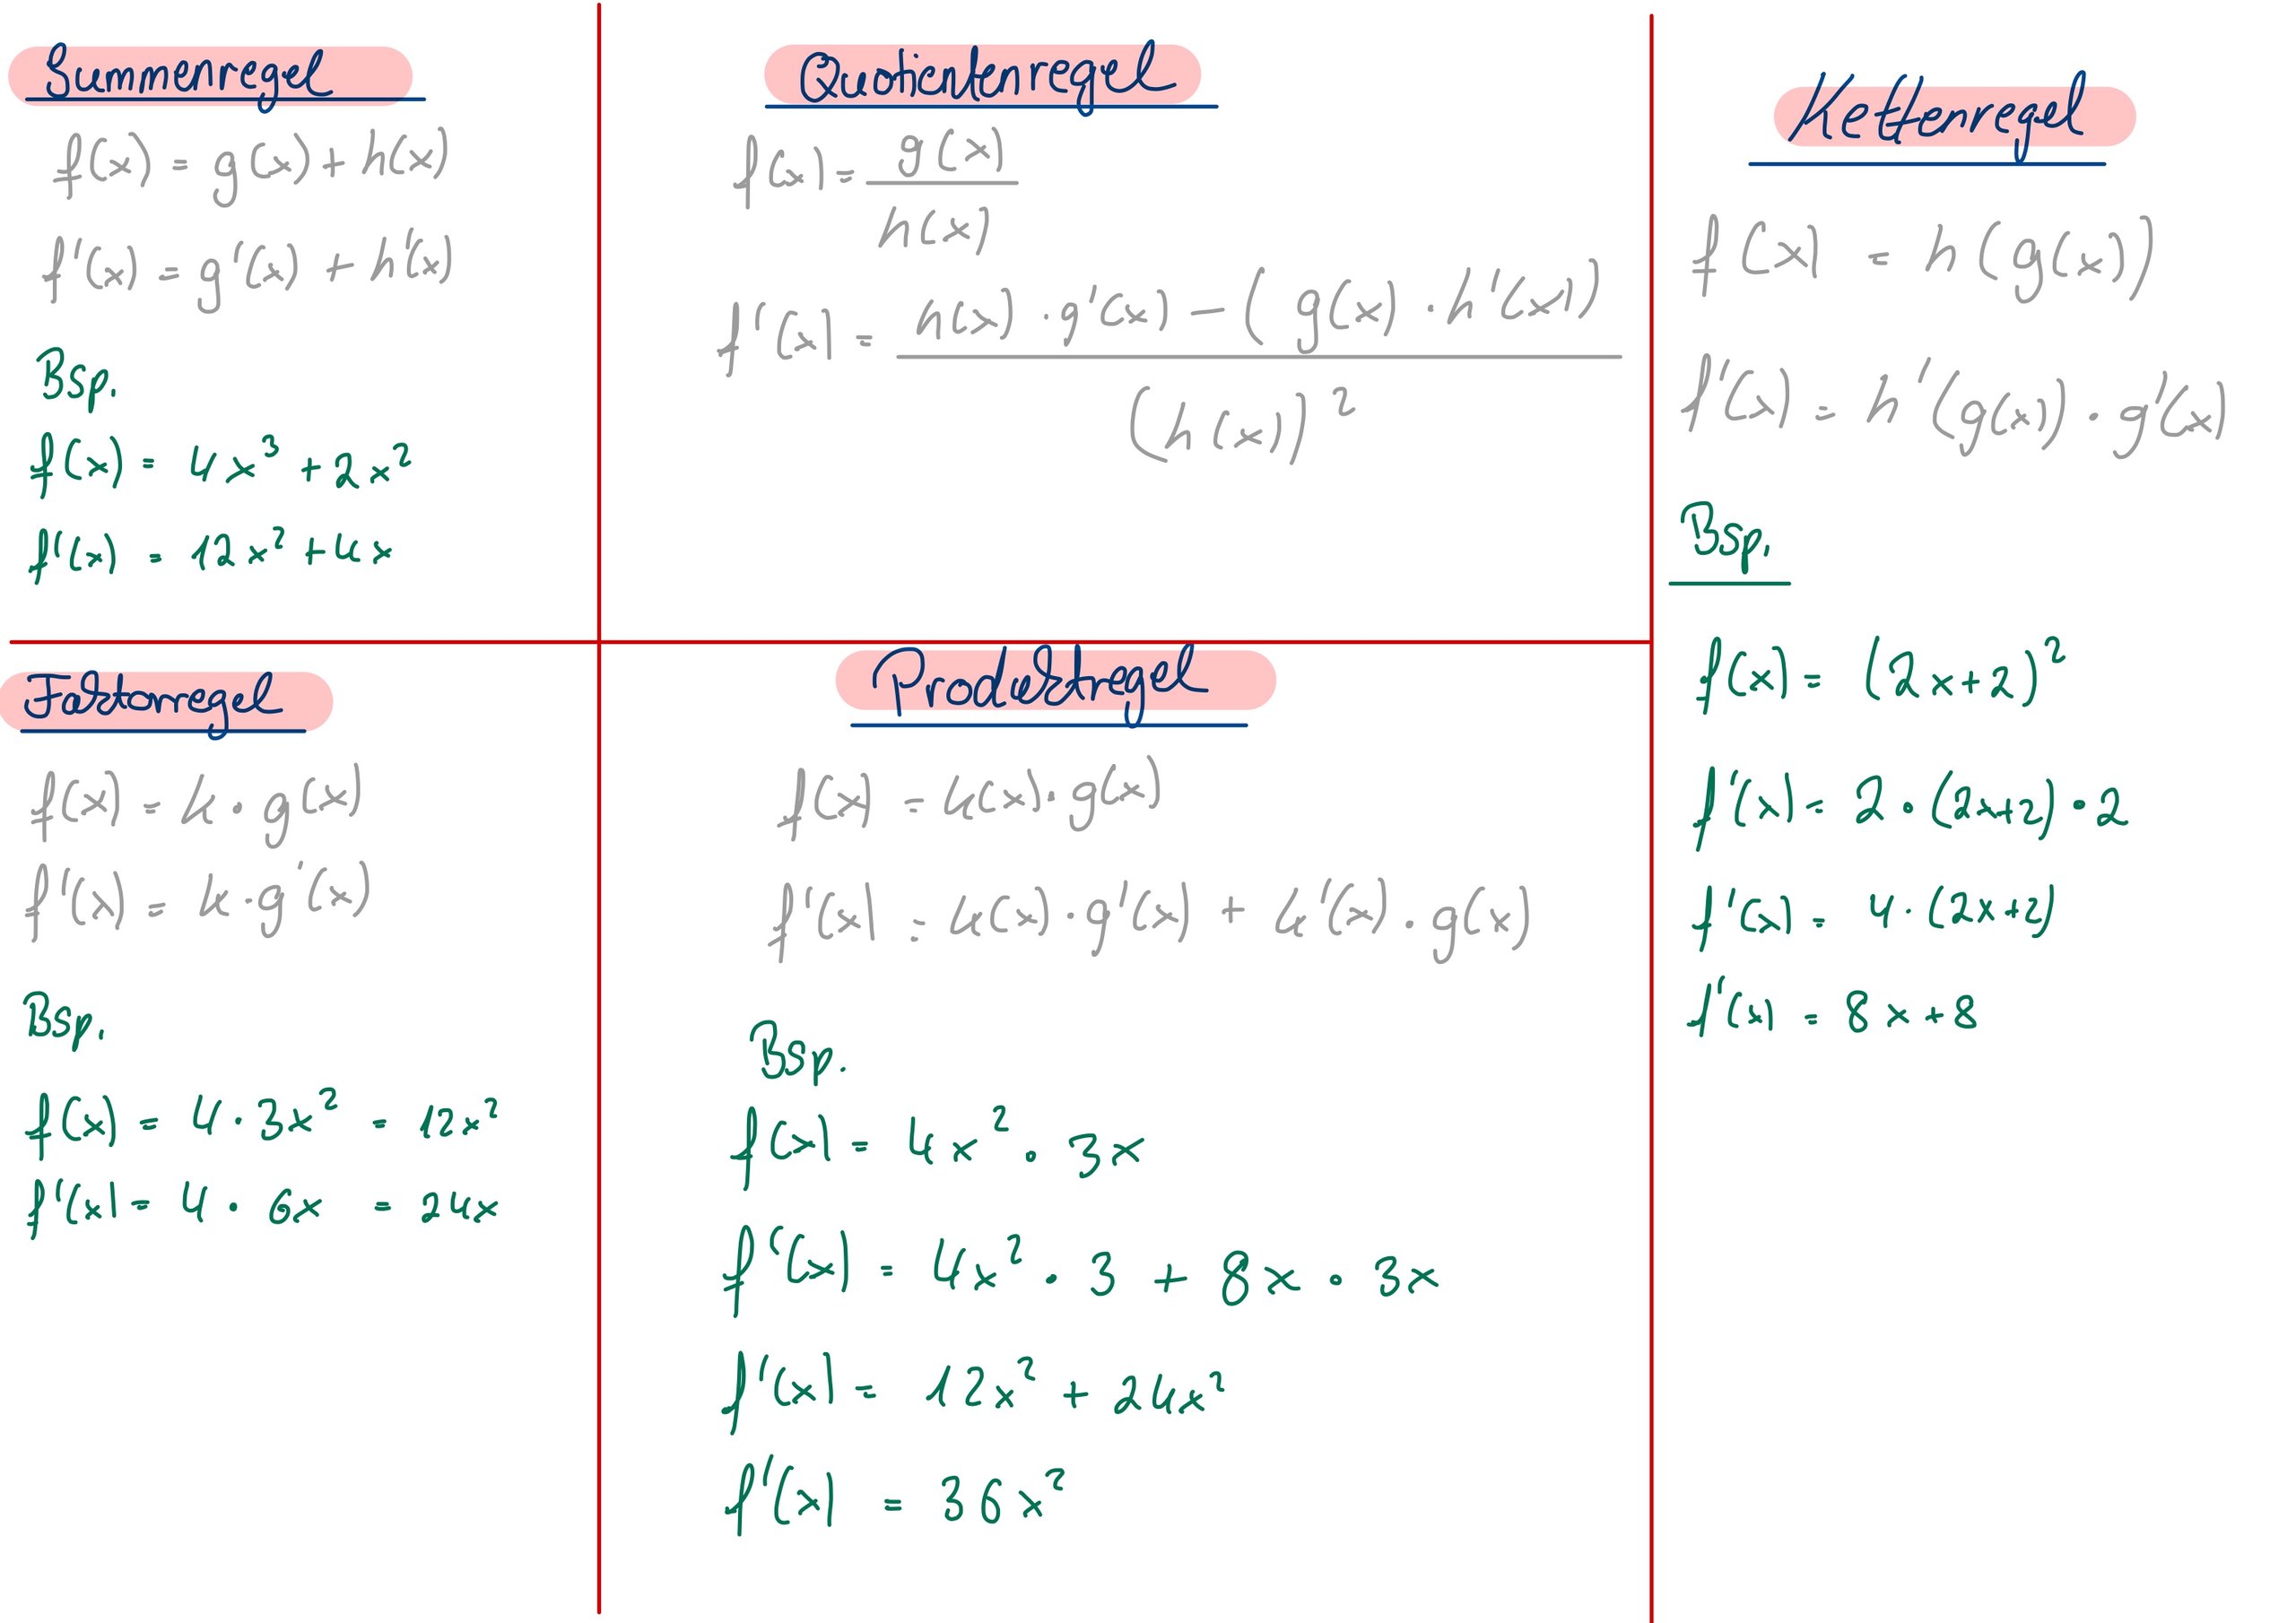 Summenregel
f(x) = g(x) + h(x)
f'(x) = g'(x) + h'(x)
Bsp.
f(x) = 4x³ + 2x²
f'(x) = 12x² + 4x
Quotientenregel
f(x) = g(x) / h(x)
f'(x) = h(x) · g'(x) − (g(x) · h'(x)) / (h(x))²
Kettenregel
f(x) = h(g(x))
f'(x) = h'(g(x)) · g'(x)
Bsp.
f(x) = (2x+2)²
f'(x) = 2 · (2x+2) · 2
f'(x) = 4 · (2x+2)
f'(x) = 8x+8
Faktorregel
f(x) = k · g(x)
f'(x) = k · g'(x)
Bsp.
f(x) = 4 · 3x² = 12x²
f'(x) = 4 · 6x = 24x
Produktregel
f(x) = k(x) · g(x)
f'(x) = k(x) · g'(x) + k'(x) · g(x)
Bsp.
f(x) = 4x² · 3x
f'(x) = 4x² · 3 + 8x · 3x
f'(x) = 12x² + 24x²
f'(x) = 36x²